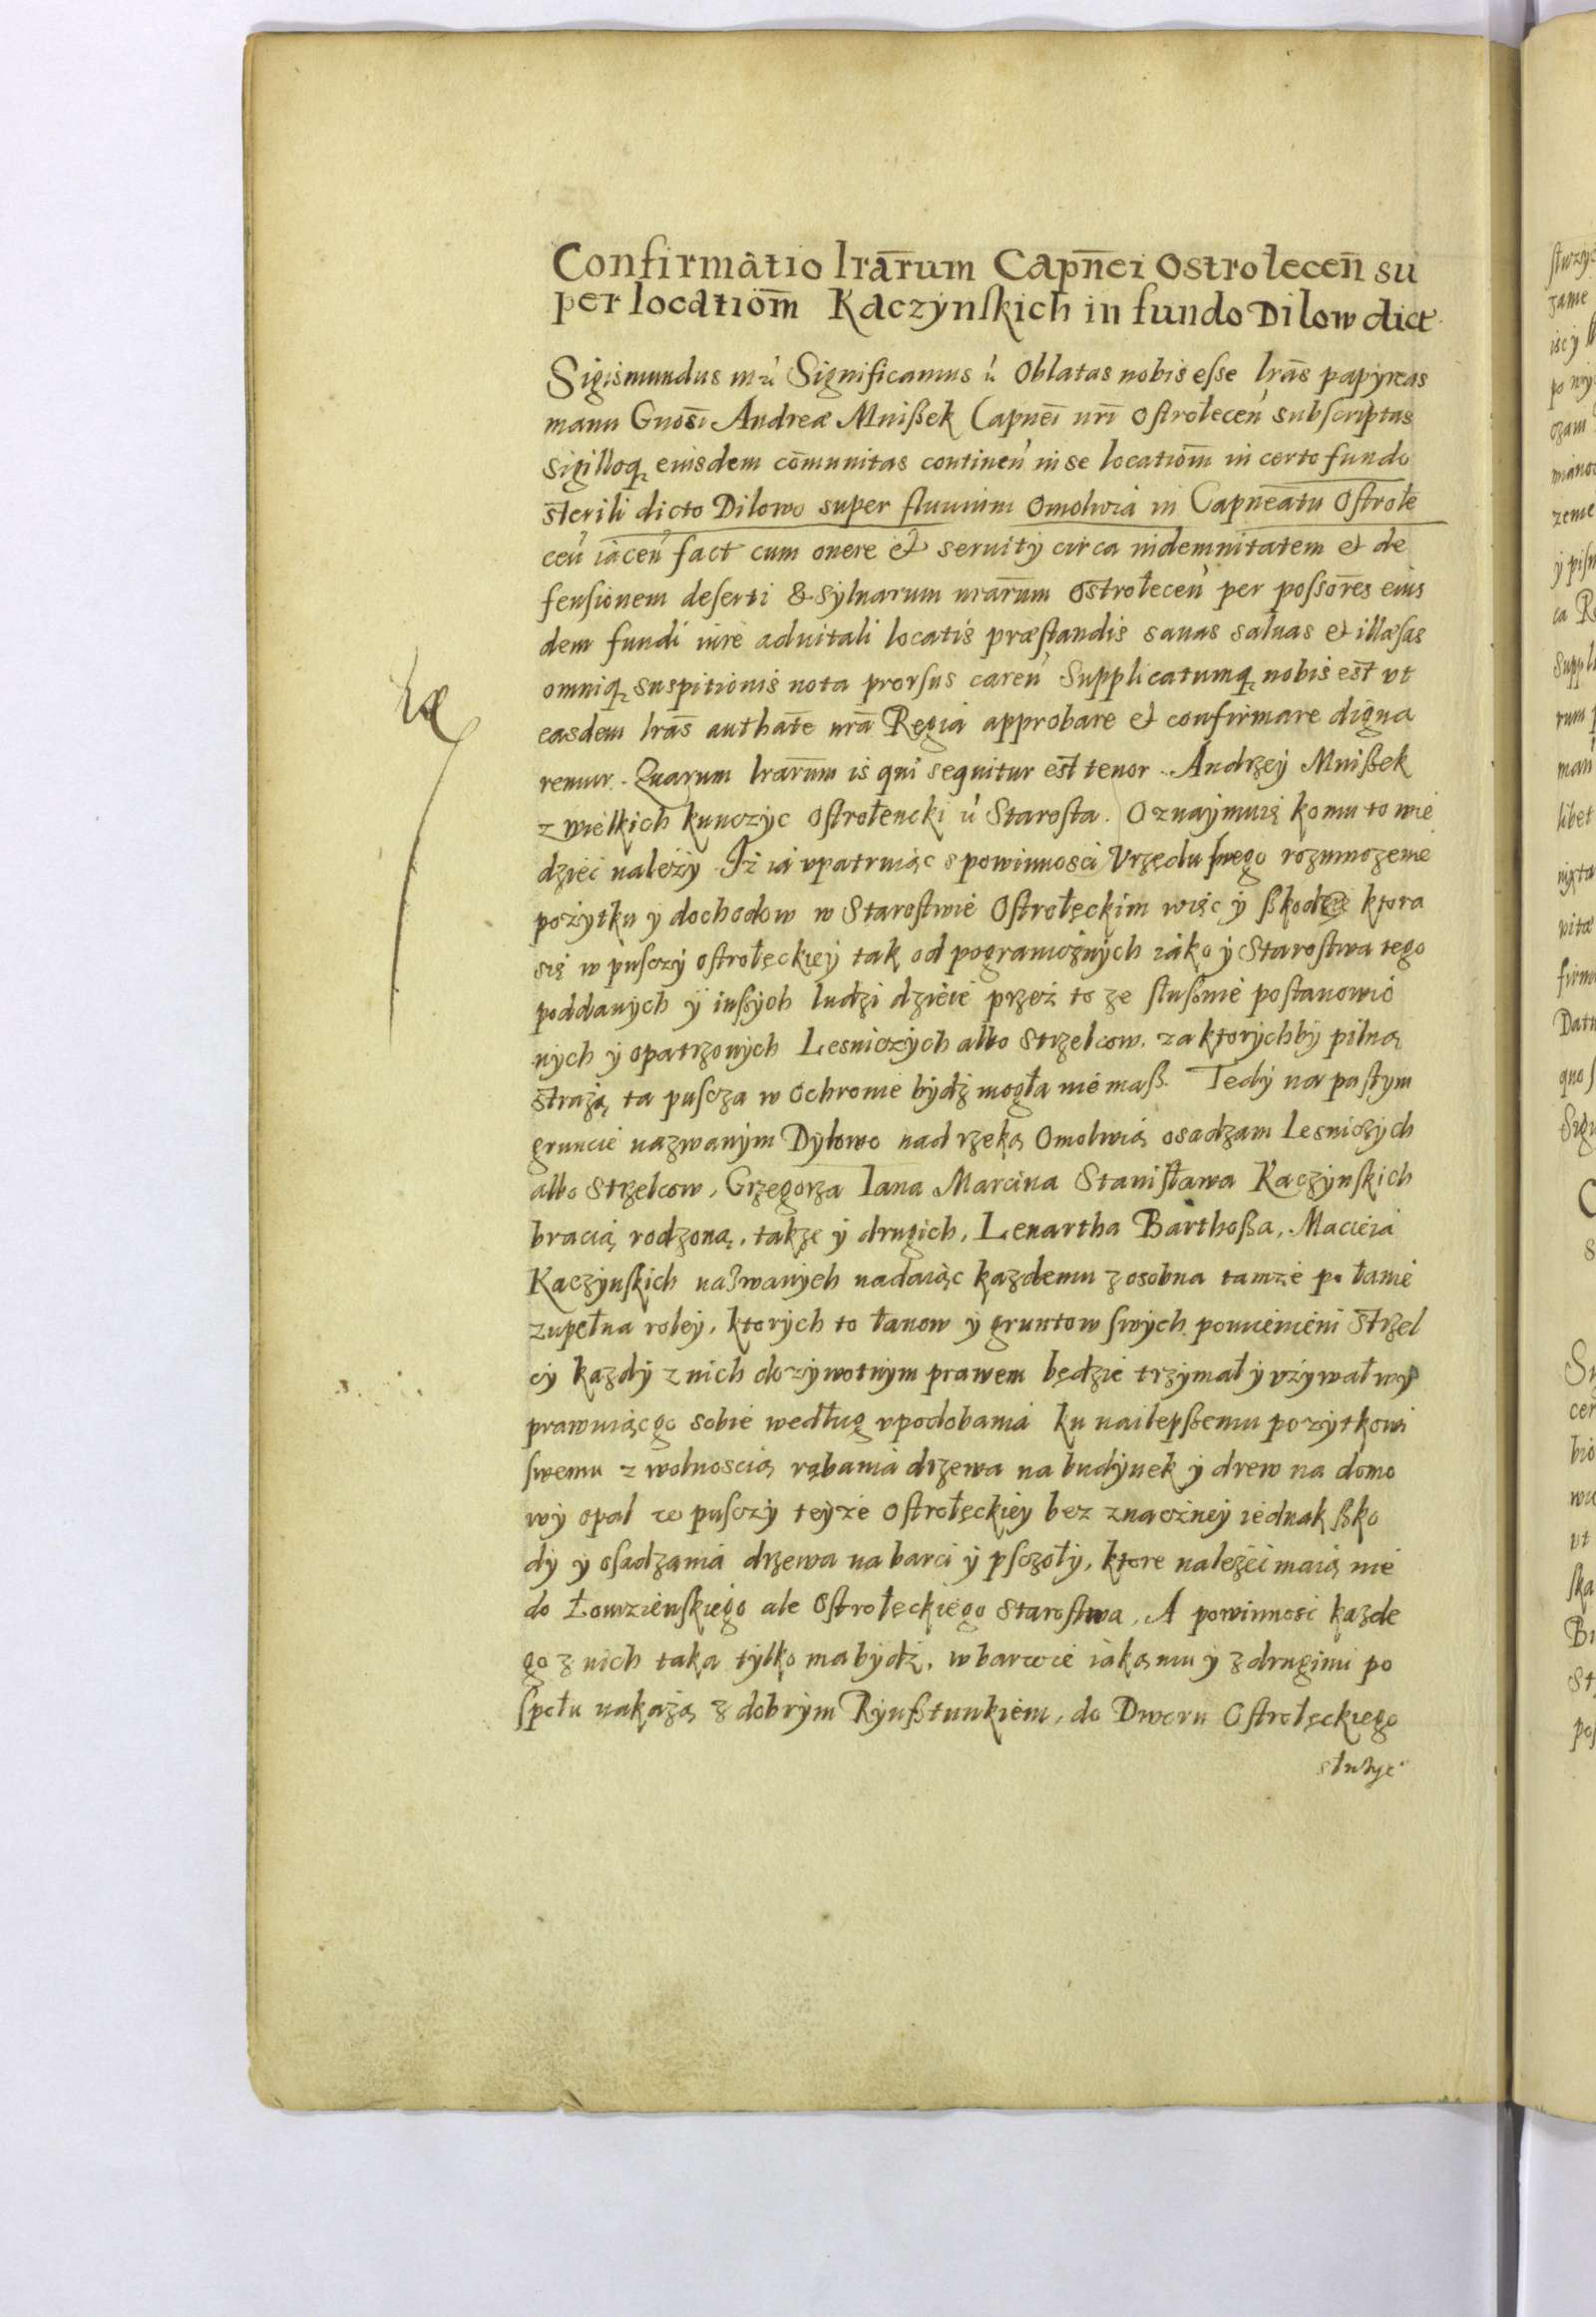 Confirmatio lrārum Capnēi Ostrołecen̄ su
per locatiom̄ Kaczynſkich in fundo Dilow dict
Sigismundus Significamus Oblatas nobis eſse lrās papyreas
manu Gnosī Andreæ Mnißek Capneī nrī Oſtrołecen̄ subſcriptas
sigilloq eiusdem cōmunitas continen̄ in se locatiōm in certo fundo
sterili dicto Dilowo super fluuium Omolwia in Capneātu Oſtrołe
cen̄ iacen̄ fact cum onere et seruitÿ circa indemnitatem et de
fenſionem deſerti & sÿluarum nrārum Ostrołecen̄ per poſsorēs eius
dem fundi iure aduitali locatis præſtandis sanas saluas et illæſas
omniq suspitionis nota prorſus caren̄ Supplicatumq nobis est vt
easdem lrās authatē nrā Regia approbare et confirmare digna
remur. Quarum lrārum is qui sequitur est tenor. Andrzeÿ Mnißek
z wielkich kunczÿc Oſtrołencki Staroſta. Oznaÿmuię komu to wie
dzieć należÿ. Iż ia vpatruiąc s powinnosci Vrzędu ſwego rozmnozenie
pożÿtku ÿ dochodow w Staroſtwie Oſtrołęckim więc ÿ ßkodzie ktora
się w puſczÿ oſtrołęckieÿ tak od pogranicznÿch iako ÿ Staroſtwa tego
poddanÿch ÿ inßÿch ludzi dzieie przez to ze ſlußnie poſtanowio
nÿch ÿ opatrzonÿch Lesniczÿch albo Strzelcow. za ktorÿchbÿ pilną
strażą ta puſcza w ochronie bÿdź mogła nie maß. Tedÿ na paſtym
gruncie nazwanÿm Dÿlowo nad rzeką Omolwią osadzam lesniczÿch
albo Strzelcow, Grzegorza Iana Marcina Staniſława Kaczÿnſkich
bracią rodzoną, także ÿ drugich, Lenartha Barthoßa, Macieia
Kaczÿnſkich nazwanÿch nadaiąc kazdemu z osobna tamże po łanie
zupełna roleÿ, ktorÿch to łanow ÿ gruntow ſwÿch pomienieni Strzel
cÿ kazdÿ z nich dozÿwotnÿm prawem będzie trzÿmał ÿ vżÿwał wÿ
prawuiąc go sobie według vpodobania ku nailepßemu pozÿtkowi
ſwemu z wolnoscią rąbania drzewa na budÿnek ÿ drew na domo
wÿ opal w puſczÿ teÿże Oſtrołęckieÿ bez znaczneÿ iednak ßko
dÿ ÿ oſadzania drzewa na barci ÿ pſczołÿ, ktore należeć maią nie
do Łomzienſkiego ale Oſtrołęckiego Staroſtwa. A powinnosć kazde
go z nich taka tÿlko ma bÿdź, w barwie iaką mu ÿ z drugimi po
ſpołu nakażą z dobrÿm Rÿnßtunkiem, do Dworu Oſtrołęckiego
słuzÿć